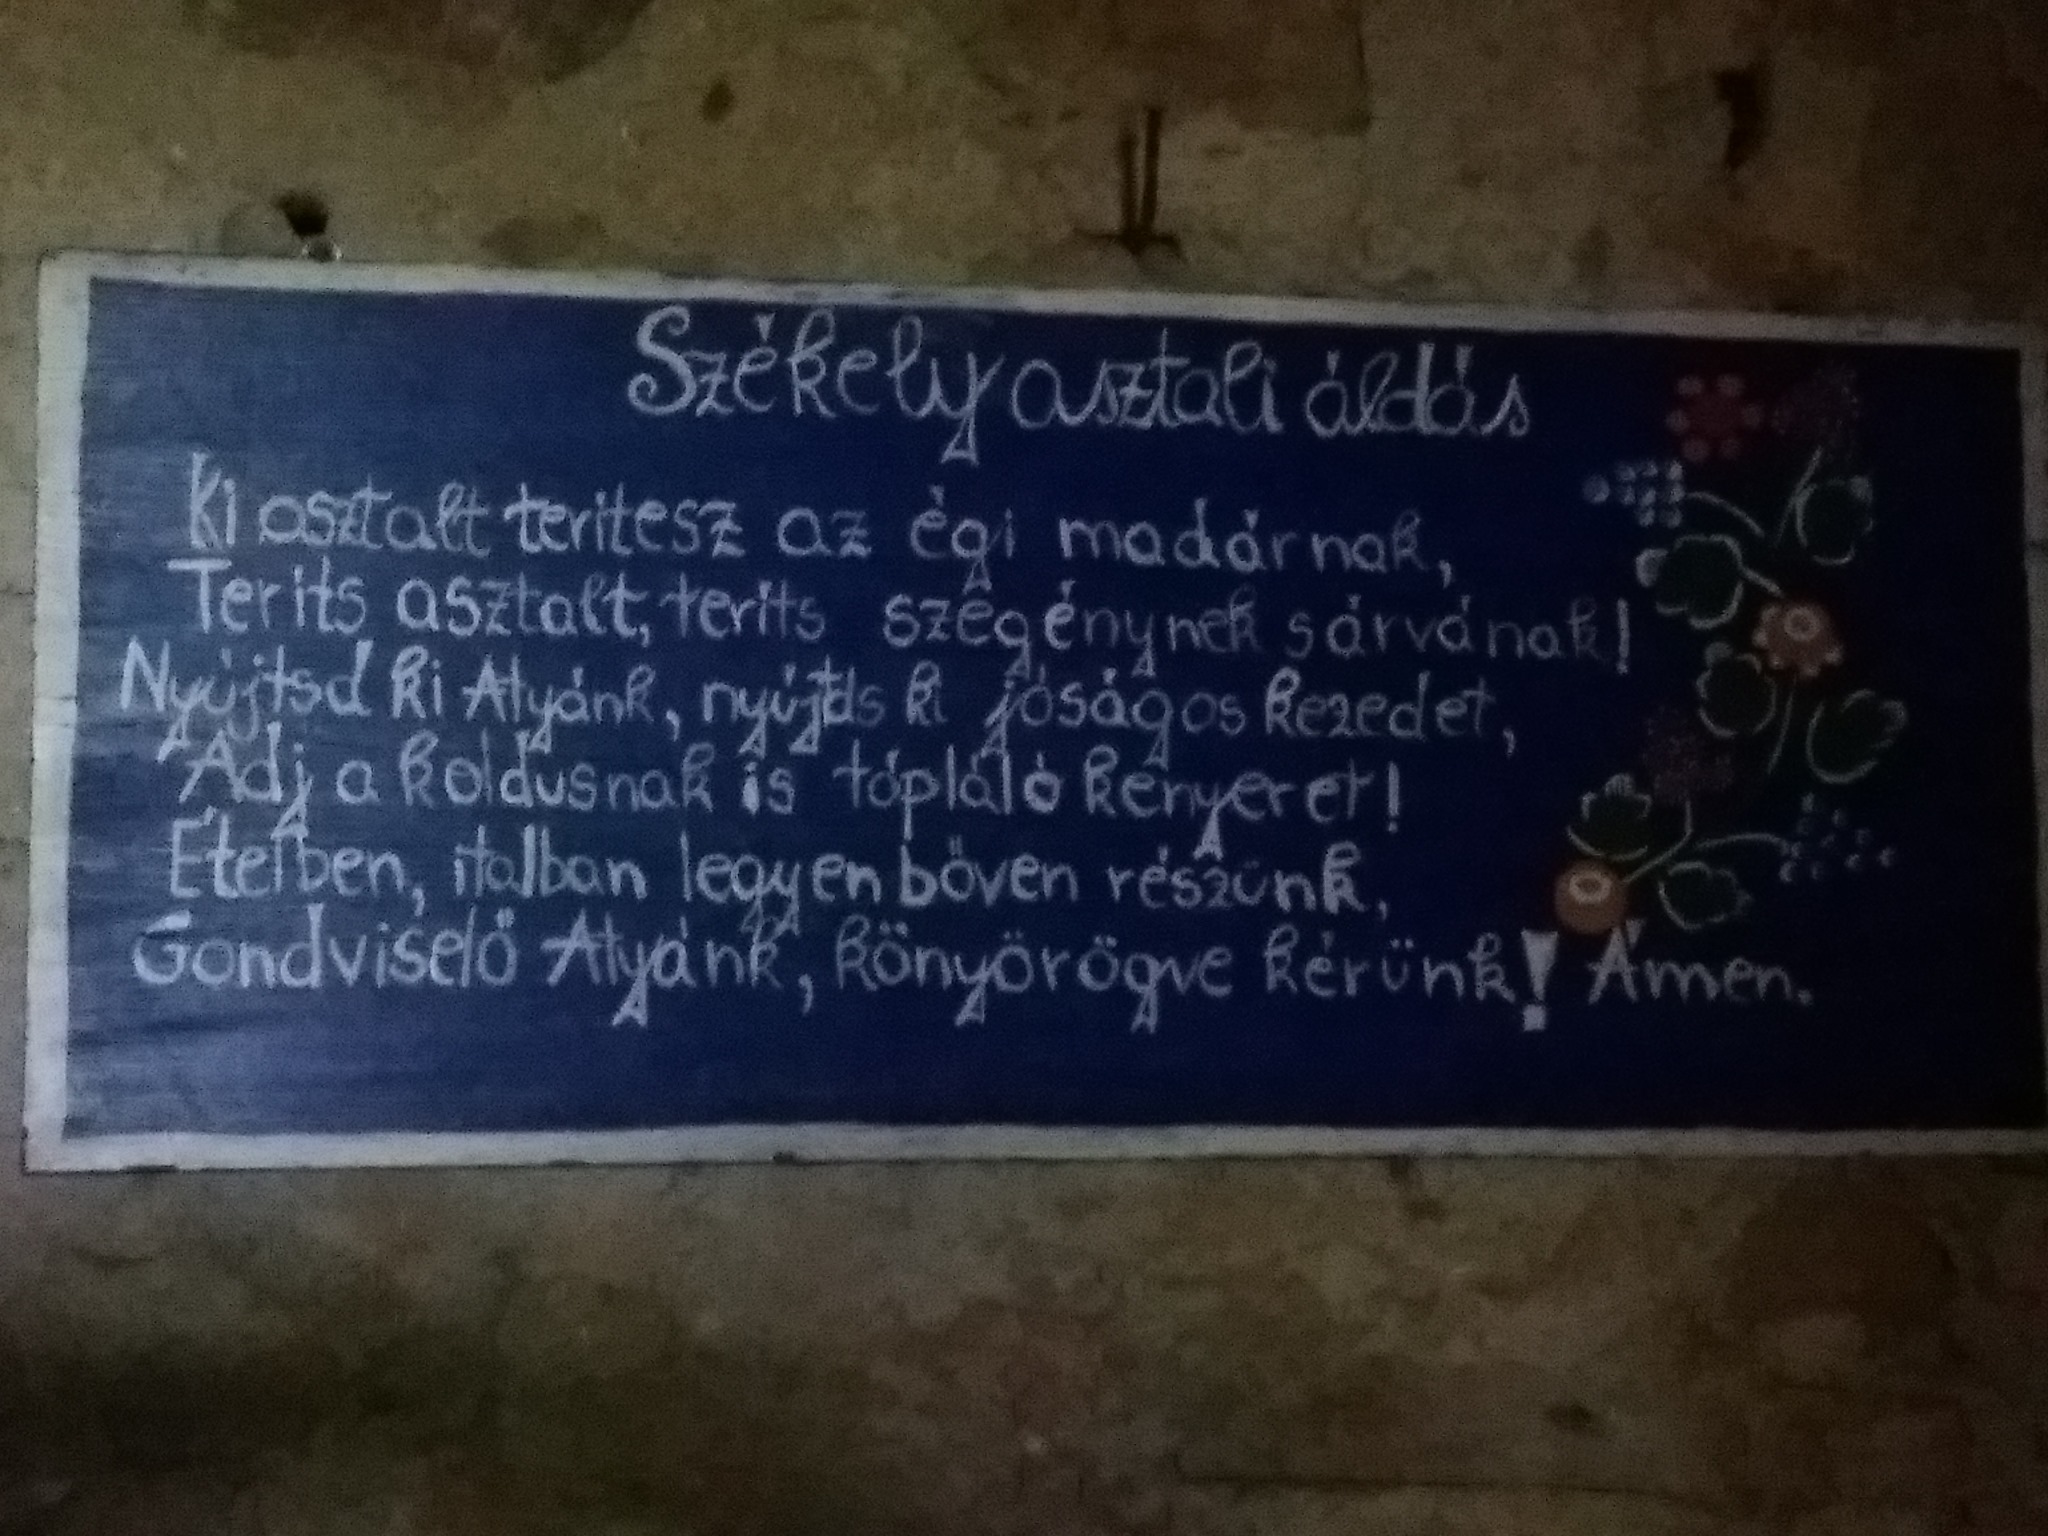 Székely asztali áldás
Ki asztalt teritesz az égi madárnak,
Terits asztalt, terits szegénynek sárvának!
Nyújtsd ki Atyánk, nyújtds ki jóságos kezedet,
Adj a koldusnak is tópláló kenyeret!
Ételben, italban legyen bőven részünk,
Gondviselő Atyánk, könyörögve kérünk! Ámen.